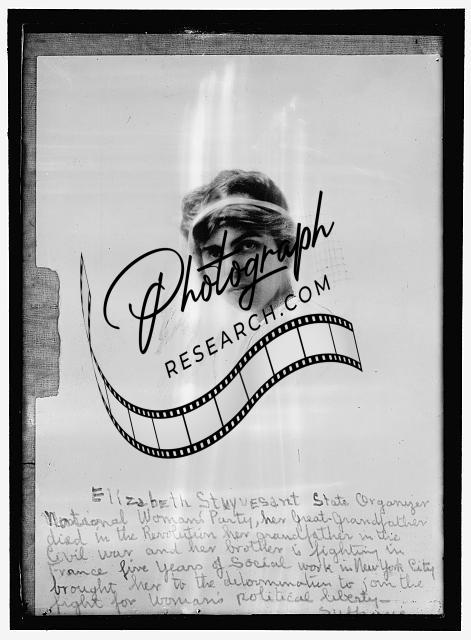 Photograph
RESEARCH.COM
Elizabeth Stuyvesant State Organizer
National Womans Party, her Great-Grandfather
died in the Revolution her grandfather in the
Civil war and her brother is fighting in
France five years of Social work in New York City
brought her to the determination to join the
fight for Woman's political liberty—